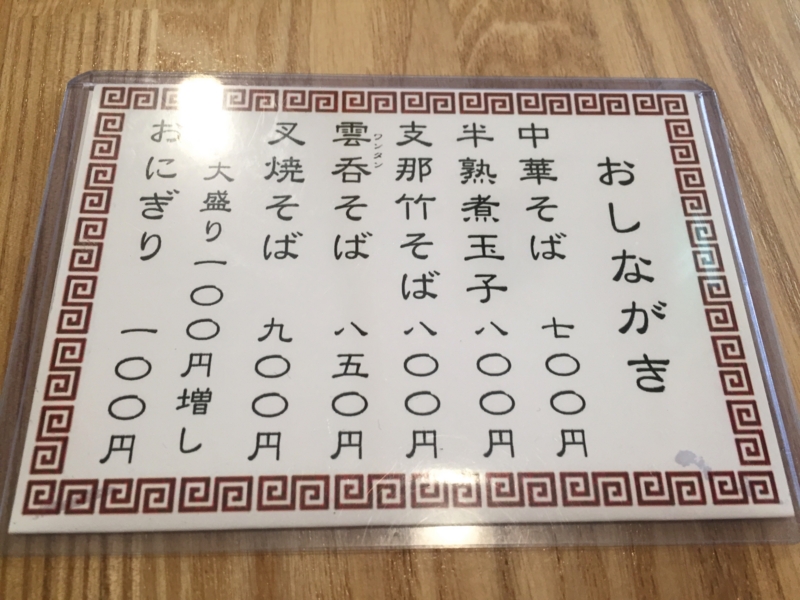 おしながき
中華そば 七〇〇円
半熟煮玉子 八〇〇円
支那竹そば 八〇〇円
雲呑そば 八五〇円
ワンタン
叉焼そば 九〇〇円
大盛り一〇〇円増し
おにぎり 一〇〇円